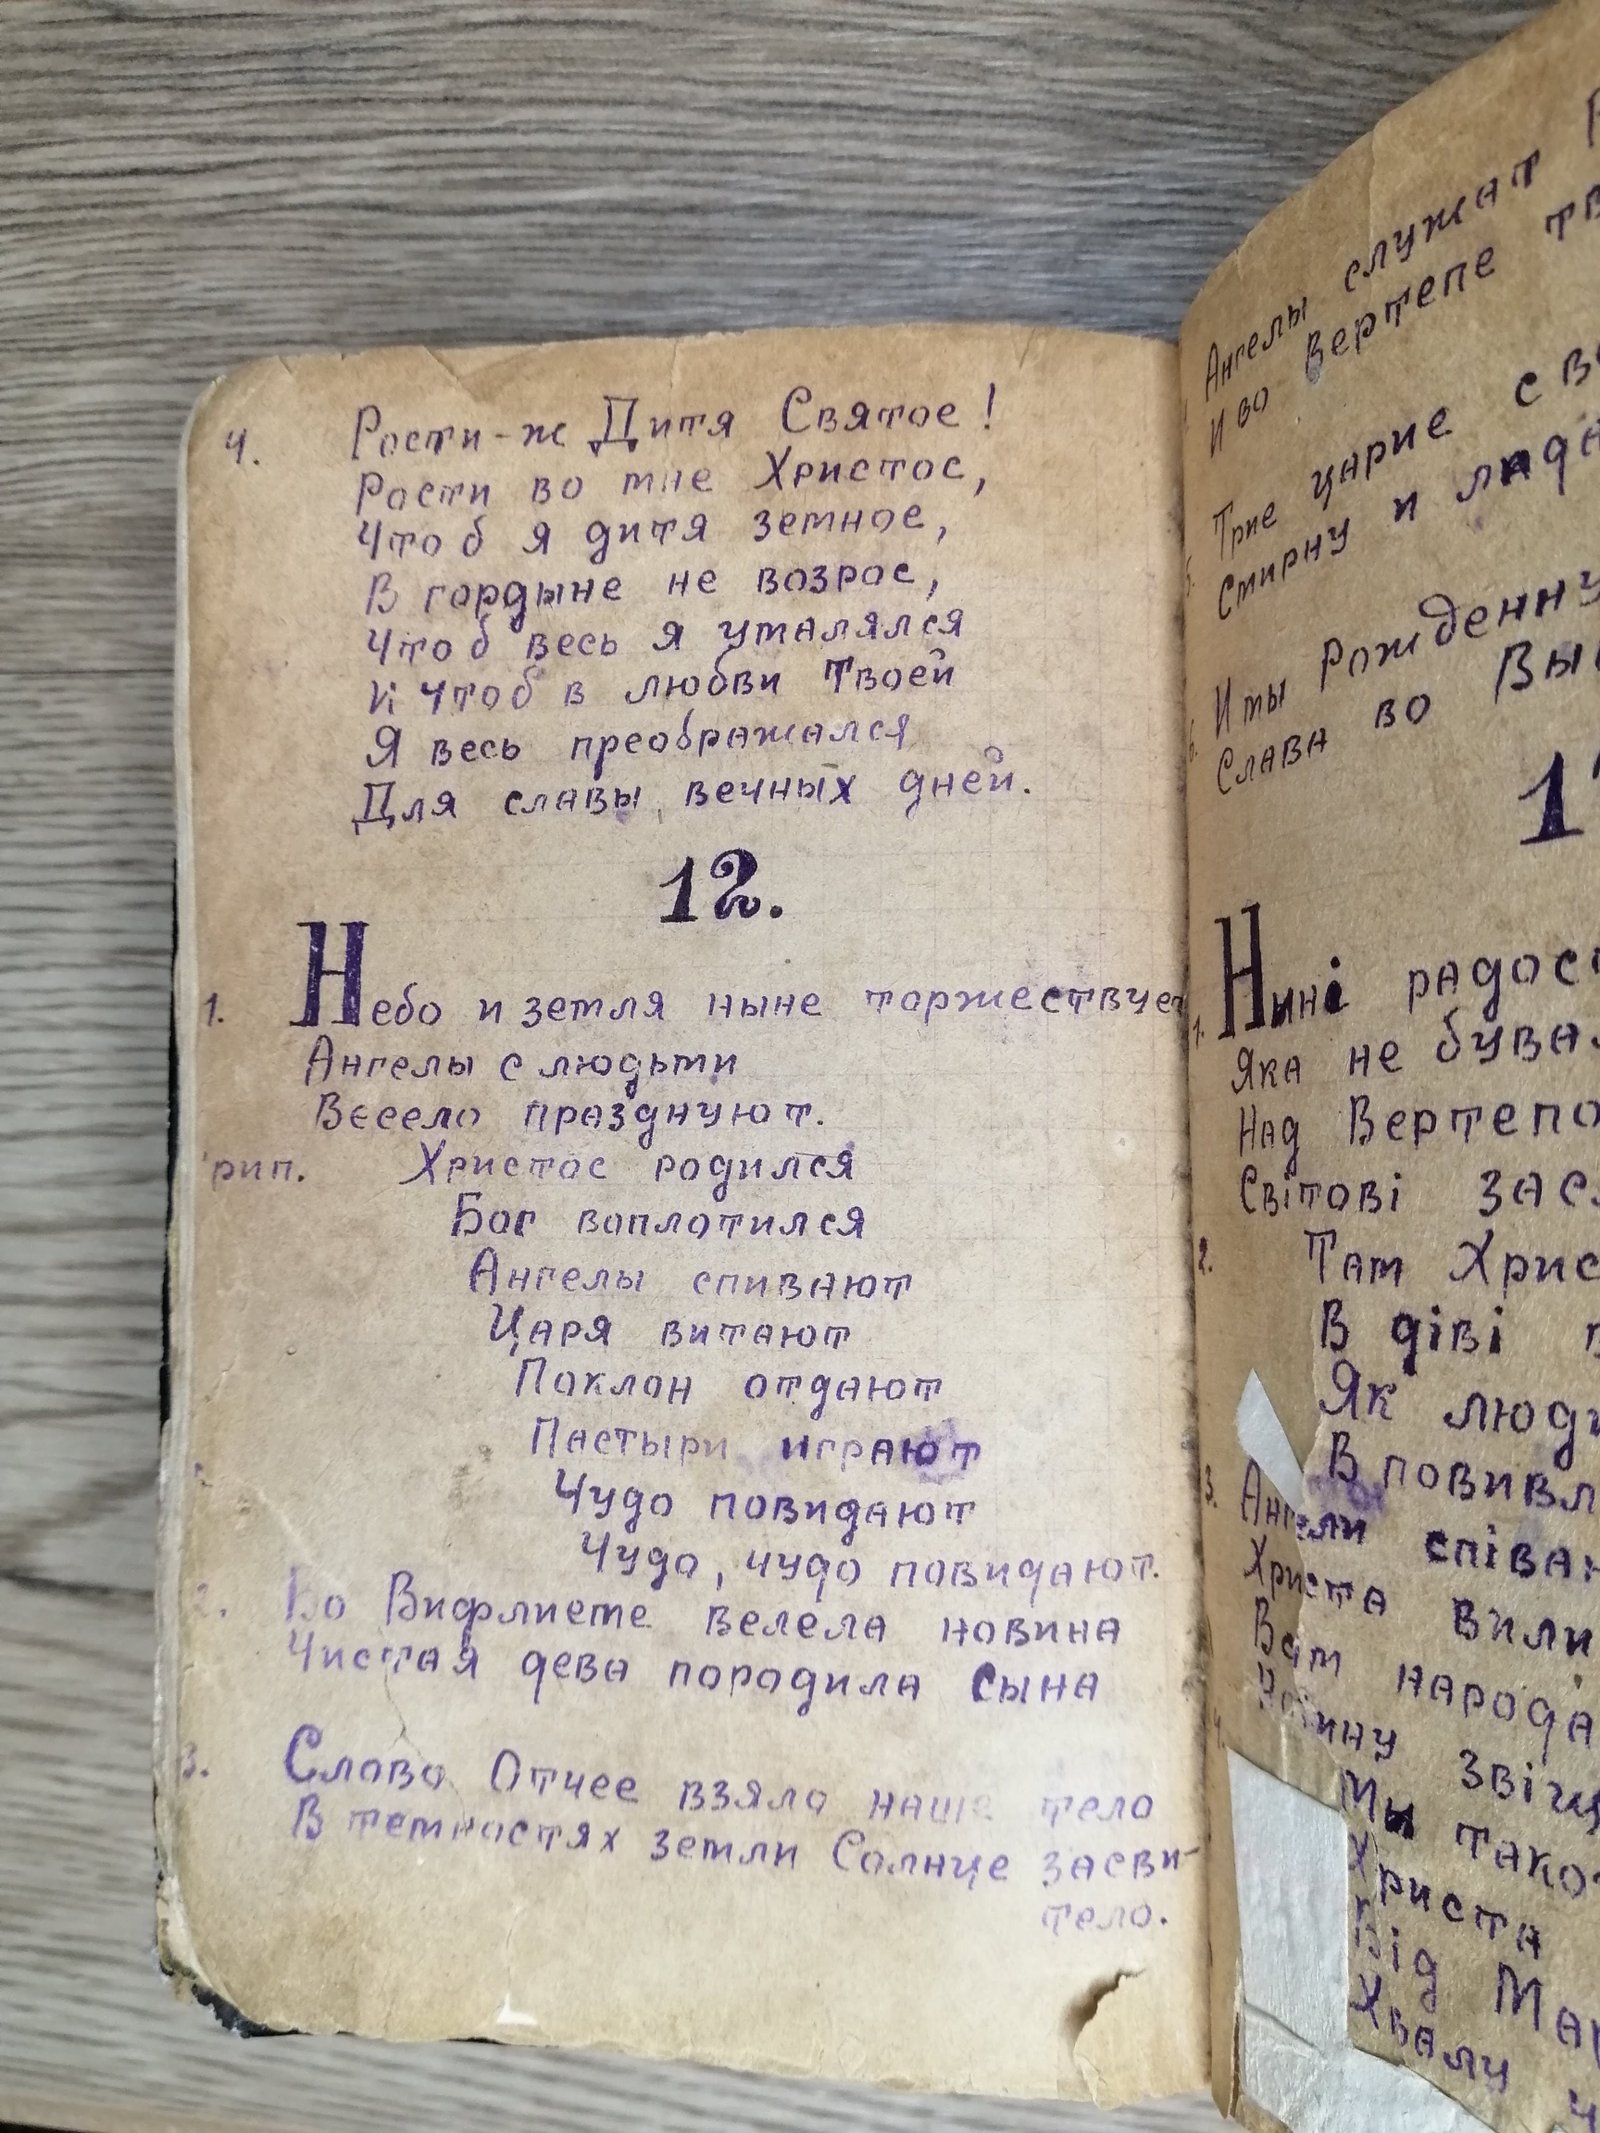 4. Рости-ж Дитя Святое!
Рости во мне Христос,
Чтоб я дитя земное,
В гордыне не возрос,
Чтоб весь я умалялся
И чтоб в любви Твоей
Я весь преображался
Для славы вечных дней.
12.
1. Небо и земля ныне торжествует
Ангелы с людьми
Весело празднуют.
рип. Христос родился
Бог воплотился
Ангелы спивают
Царя витают
Поклон отдают
Пастыри играют
Чудо повидают
Чудо, чудо повидают.
2. Во Вифлиеме велела новина
Чистая дева породила Сына
3. Слово Отчее взяло наше тело
В темностях земли Солнце засви-
тело.
Ангелы служат
И во Вертепе
Трие царие с
5. Смирну и
И ты Рожденну
6. Слава во
1. Нині
Яка не
Над
Світові
2. Там
В діві
Як
В
3. Ангели
Христа
Вам
Новину
4. Ми
Христа
Від
Хвалу